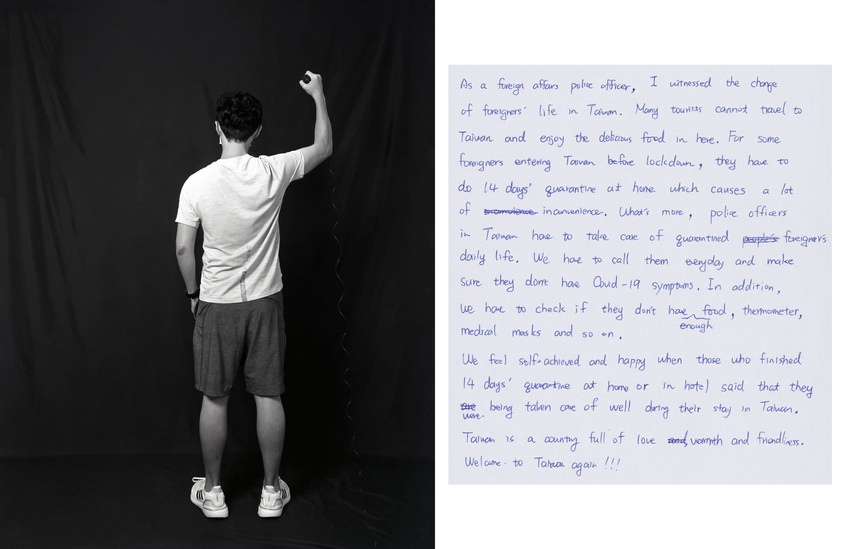 As a foreign affairs police officer, I witnessed the change
of foreigners' life in Taiwan. Many tourists cannot travel to
Taiwan and enjoy the delicious food in here. For some
foreigners entering Taiwan before lockdown, they have to
do 14 days' quarantine at home which causes a lot
of inconvenience. What's more, police officers
in Taiwan have to take care of quarantined people's foreigners
daily life. We have to call them everyday and make
sure they don't have Covid-19 symptoms. In addition,
we have to check if they don't have food, thermometer,
enough
medical masks and so on.
We feel self-achieved and happy when those who finished
14 days' quarantine at home or in hotel said that they
are being taken care of well during their stay in Taiwan.
were
Taiwan is a country full of love and, warmth and friendliness.
Welcome to Taiwan again !!!